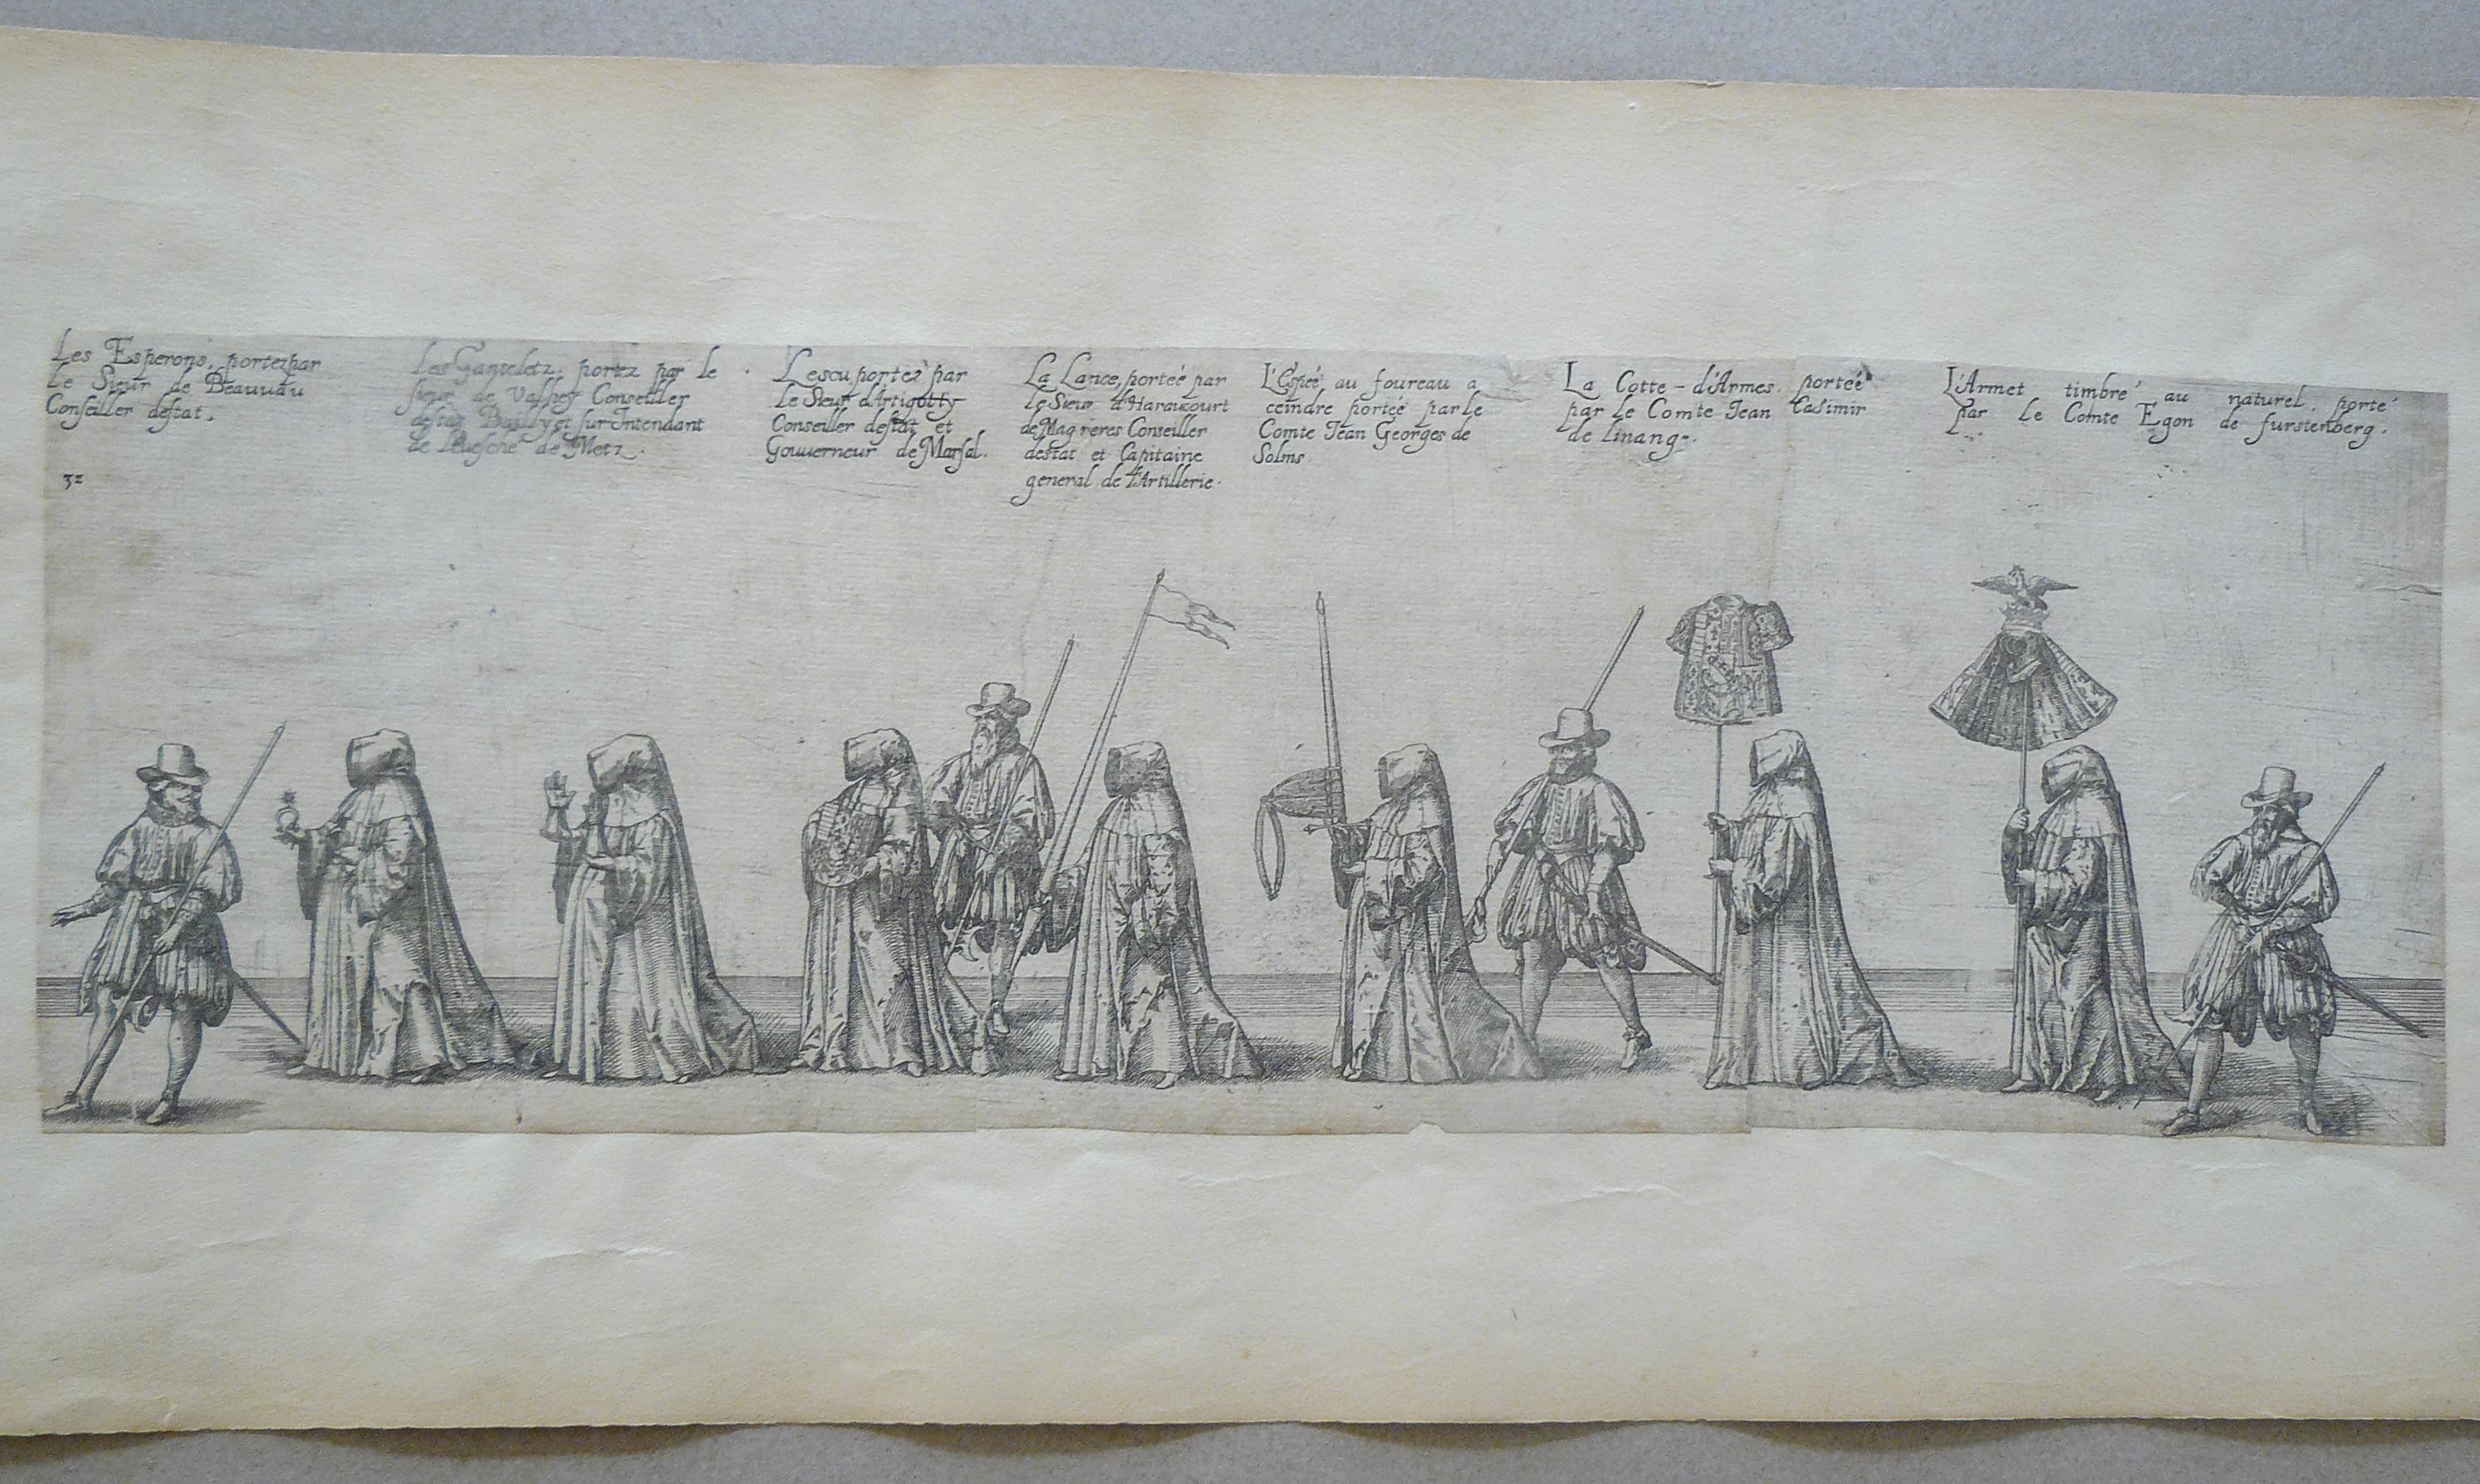 Les Esperons, portez par
le Sieur de Beauuau
Conseiller destat.
32
Les Ganteletz, portez par le
sieur de Valhey Conseiller
destat Bailly et sur-Intendant
le leuesché de Metz.
Lescu portez par
le Sieur d'Artigotty
Conseiller destat et
Gouuerneur de Marsal.
La Lance, porteé par
le Sieur d'Haraucourt
de Magnieres Conseiller
destat et Capitaine
general de l'Artillerie.
L'Espeé, au foureau a
ceindre porteé par le
Comte Jean Georges de
Solms
La Cotte-d'Armes. porteé
par le Comte Jean Casimir
de linange.
L'Armet timbré au naturel, porté
par le Comte Egon de furstenberg.